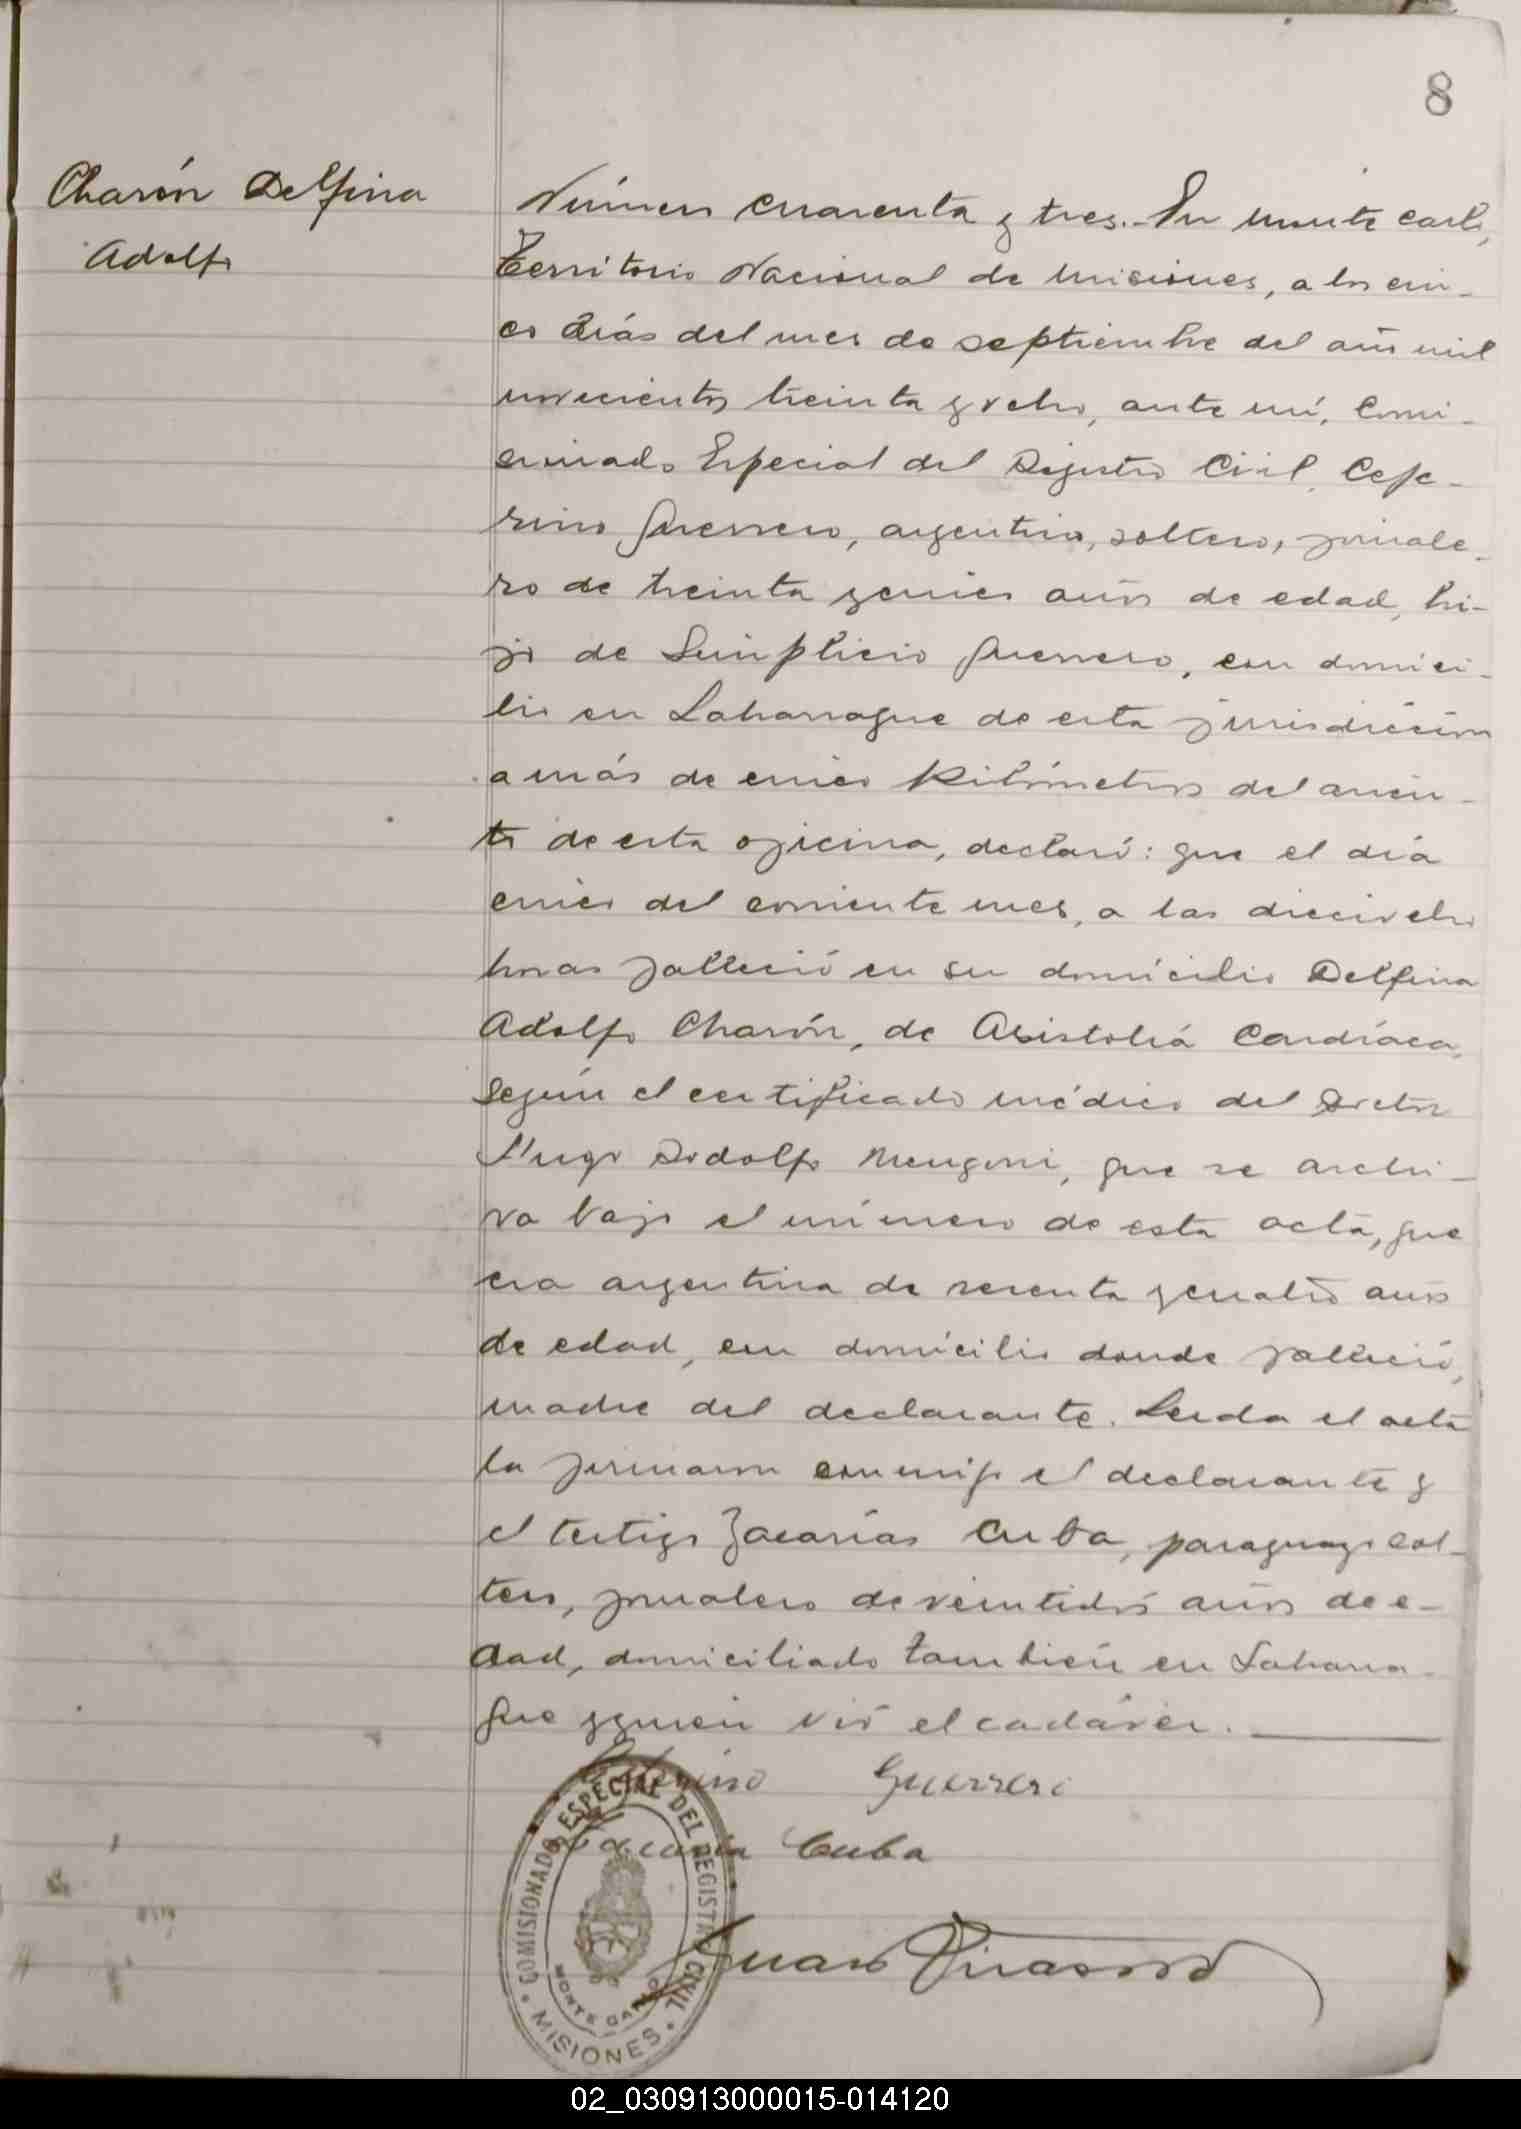 8
Charón Delfina
Adolfo
Número cuarenta y tres.- En Monte Carlo,
Territorio Nacional de Misiones, a los cin-
co días del mes de septiembre del año mil
novecientos treinta y ocho, ante mí, Comi-
sionado Especial del Registro Civil, Cefe-
rino Guerrero, argentino, soltero, jornale-
ro de treinta y cinco años de edad, hi-
jo de Simplicio Guerrero, con domici-
lio en Laharrague de esta jurisdicción
a más de cinco kilómetros del asien-
to de esta oficina, declaró: que el día
cinco del corriente mes, a las dieciocho
horas falleció en su domicilio Delfina
Adolfo Charón, de Asistolia Cardíaca,
según el certificado médico del Doctor
Hugo Rodolfo Mengoni, que se archi-
va bajo el número de esta acta, que
era argentina de sesenta y cuatro años
de edad, con domicilio donde falleció,
madre del declarante. Leída el acta
la firmaron conmigo el declarante y
el testigo Zacarías Cuba, paraguayo sol-
tero, jornalero de veintidós años de e-
dad, domiciliado también en Laharra-
gue y quien vió el cadáver.
Ceferino Guerrero
Zacaria Cuba
Juan
COMISIONADO ESPECIAL DEL REGISTRO CIVIL
MONTE CARLO
MISIONES
02_030913000015-014120